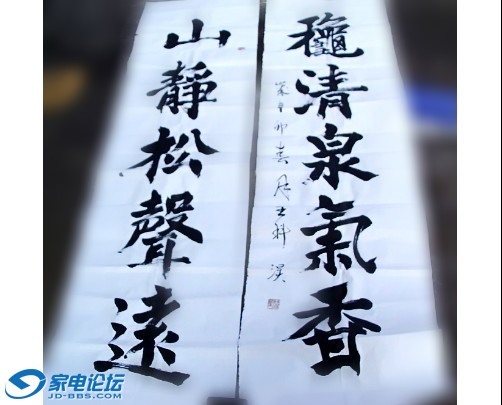 龝清泉氣香
辛卯春
山靜松聲遠
家电论坛
JD-BBS.COM